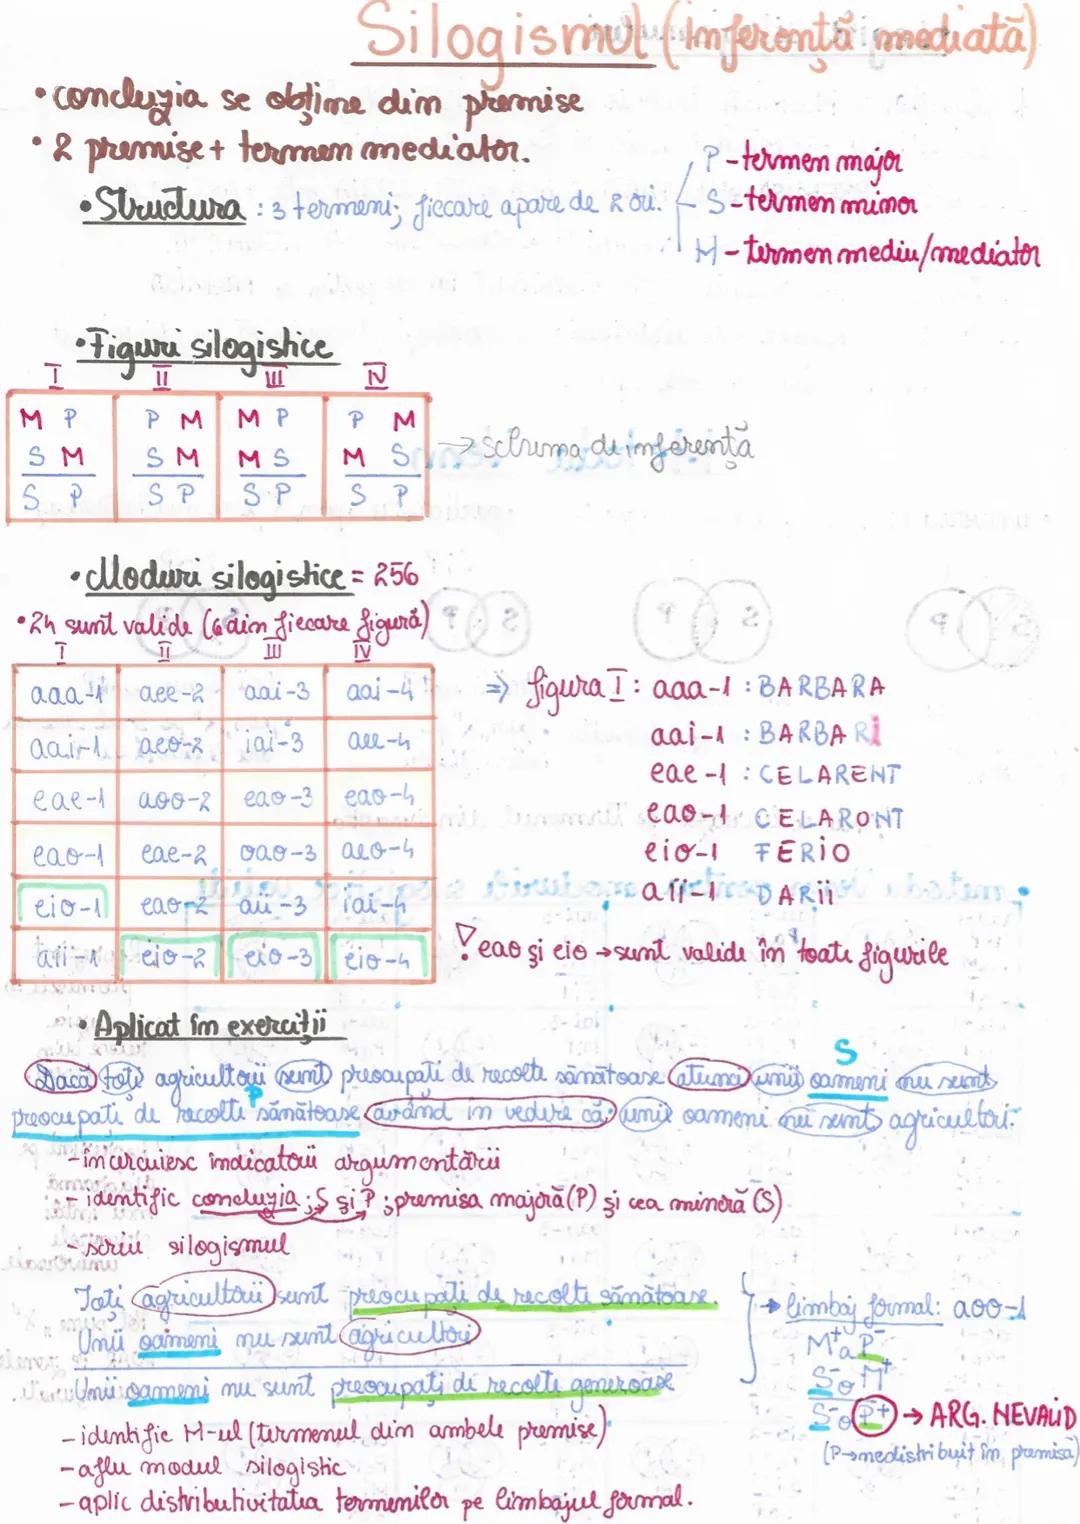 Silogismul (Inferență mediată)
• concluzia se obține din premise
• 2 premise + termen mediator.
• Structura : 3 termeni; fiecare apare de 2 ori.
P - termen major
S - termen minor
M - termen mediu/mediator
• Figuri silogistice
I II III IV
M P P M M P P M
S M S M M S M S
S P S P S P S P
→ schema de inferență
• Moduri silogistice = 256
• 24 sunt valide (6 din fiecare figură)
I II III IV
aaa-1 aee-2 aai-3 aai-4
aai-1 aeo-2 iai-3 aee-4
eae-1 aoo-2 eao-3 eao-4
eao-1 eae-2 oao-3 aeo-4
eio-1 eao-2 aii-3 iai-4
aii-1 eio-2 eio-3 eio-4
⇒ figura I : aaa-1 : BARBARA
aai-1 : BARBARi
eae-1 : CELARENT
eao-1 CELARONT
eio-1 FERiO
aii-1 DARii
! eao și eio → sunt valide în toate figurile
• Aplicat în exerciții
Dacă toți agricultorii sunt preocupați de recolte sănătoase atunci unii oameni nu sunt
S
preocupați de recolte sănătoase având în vedere că unii oameni nu sunt agricultori.
P
- încercuiesc indicatorii argumentării
- identific concluzia ; S și P ; premisa majoră (P) și cea minoră (S)
- scriu silogismul
Toți agricultorii sunt preocupați de recolte sănătoase.
Unii oameni nu sunt agricultori
Unii oameni nu sunt preocupați de recolte generoase
→ limbaj formal: aoo-1
M⁺aP⁻
S⁻oM⁺
S⁻oP⁺ → ARG. NEVALiD
(P→nedistribuit în premisă)
- identific M-ul (termenul din ambele premise)
- aflu modul silogistic
- aplic distributivitatea termenilor pe limbajul formal.